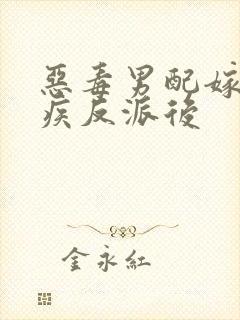 惡毒男配嫁
疾反派後
金永紅